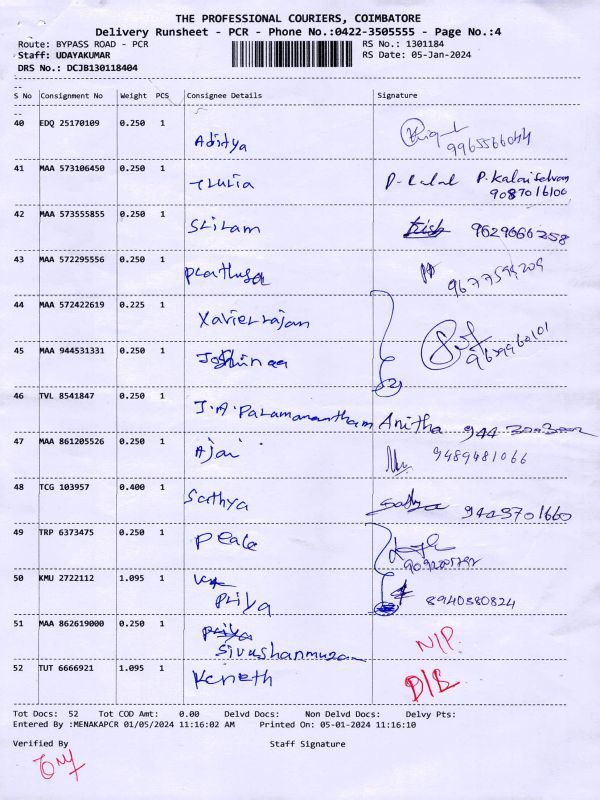 THE PROFESSIONAL COURIERS, COIMBATORE
Delivery Runsheet - PCR - Phone No.:0422-3505555 - Page No.:4
Route: BYPASS ROAD - PCR RS No.: 1301184
Staff: UDAYAKUMAR RS Date: 05-Jan-2024
DRS No.: DCJB130118404
S No Consignment No Weight PCS Consignee Details Signature
40 EDQ 25170109 0.250 1
Aditya 9965566044
41 MAA 573106450 0.250 1
P. Kalaiselvan
9087016100
42 MAA 573555855 0.250 1
Sriram 9629666258
43 MAA 572295556 0.250 1
9677594209
44 MAA 572422619 0.225 1
Xavierrajan
45 MAA 944531331 0.250 1
Joshinaa 9659960101
46 TVL 8541847 0.250 1
J.A.Paramanantham Anitha
47 MAA 861205526 0.250 1
Ajai 9489481066
48 TCG 103957 0.400 1
Sathya 9443701660
49 TRP 6373475 0.250 1
50 KMU 2722112 1.095 1
Priya 8940380824
51 MAA 862619000 0.250 1
N/P.
52 TUT 6666921 1.095 1
D/L
Tot Docs: 52 Tot COD Amt: 0.00 Delvd Docs: Non Delvd Docs: Delvy Pts:
Entered By :MENAKAPCR 01/05/2024 11:16:02 AM Printed On: 05-01-2024 11:16:10
Verified By Staff Signature